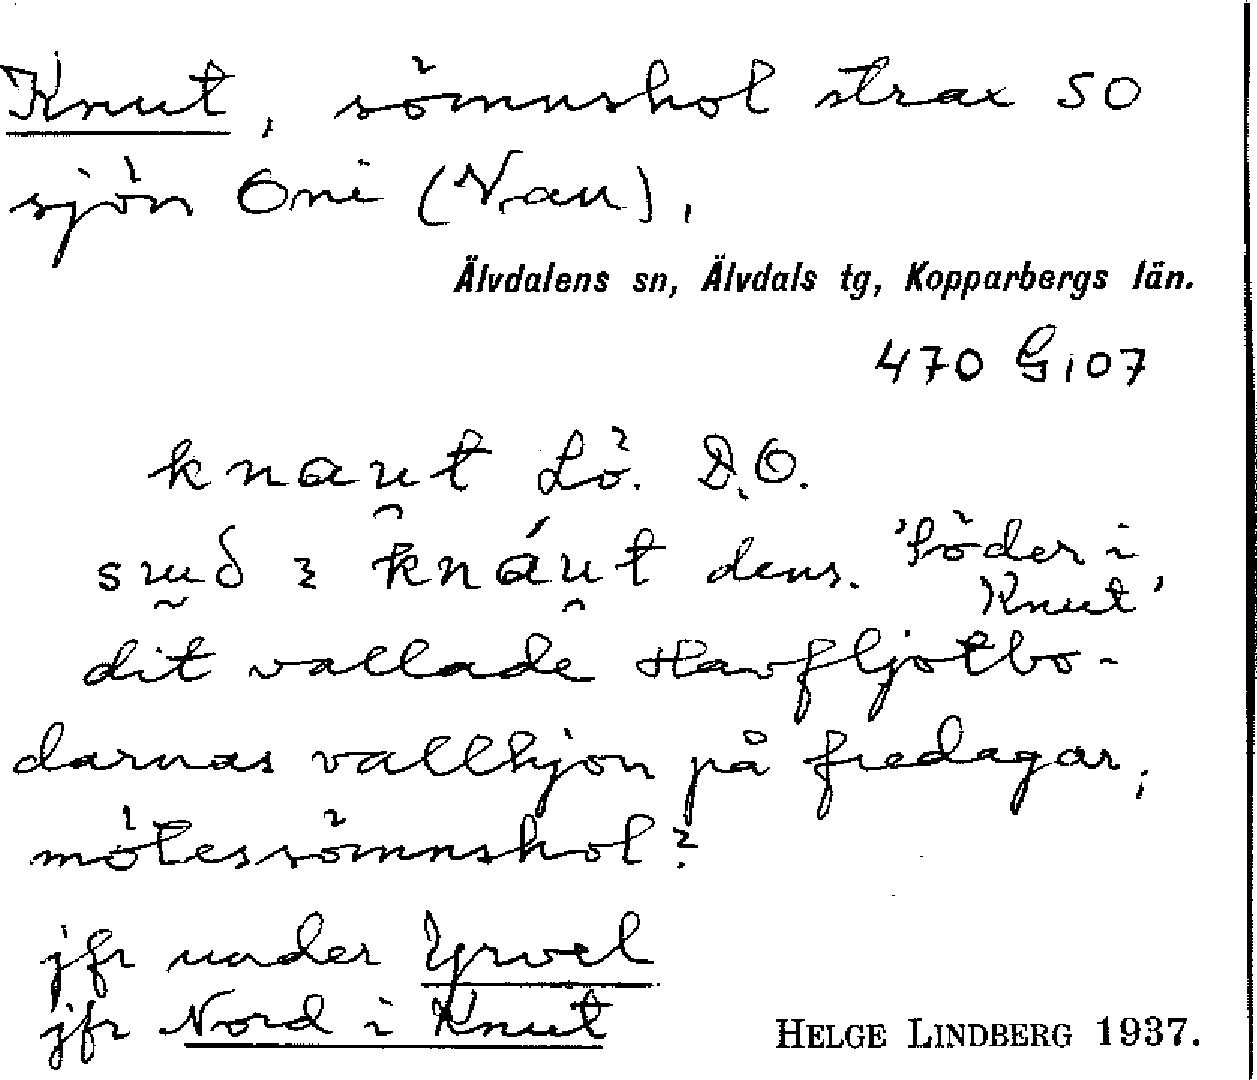 Knut, sömnshol strax SO
sjön Oni (Nau),
Älvdalens sn, Älvdals tg, Kopparbergs län.
470 G107
knaut Lö. D.O.
suð i knáut dens. 'Söder i
Knut'
dit vallade Havfljotbo-
darnas vallhjon på fredagar,
mötessömnshol?
jfr under Yrvel
jfr Nord i Knut
HELGE LINDBERG 1937.